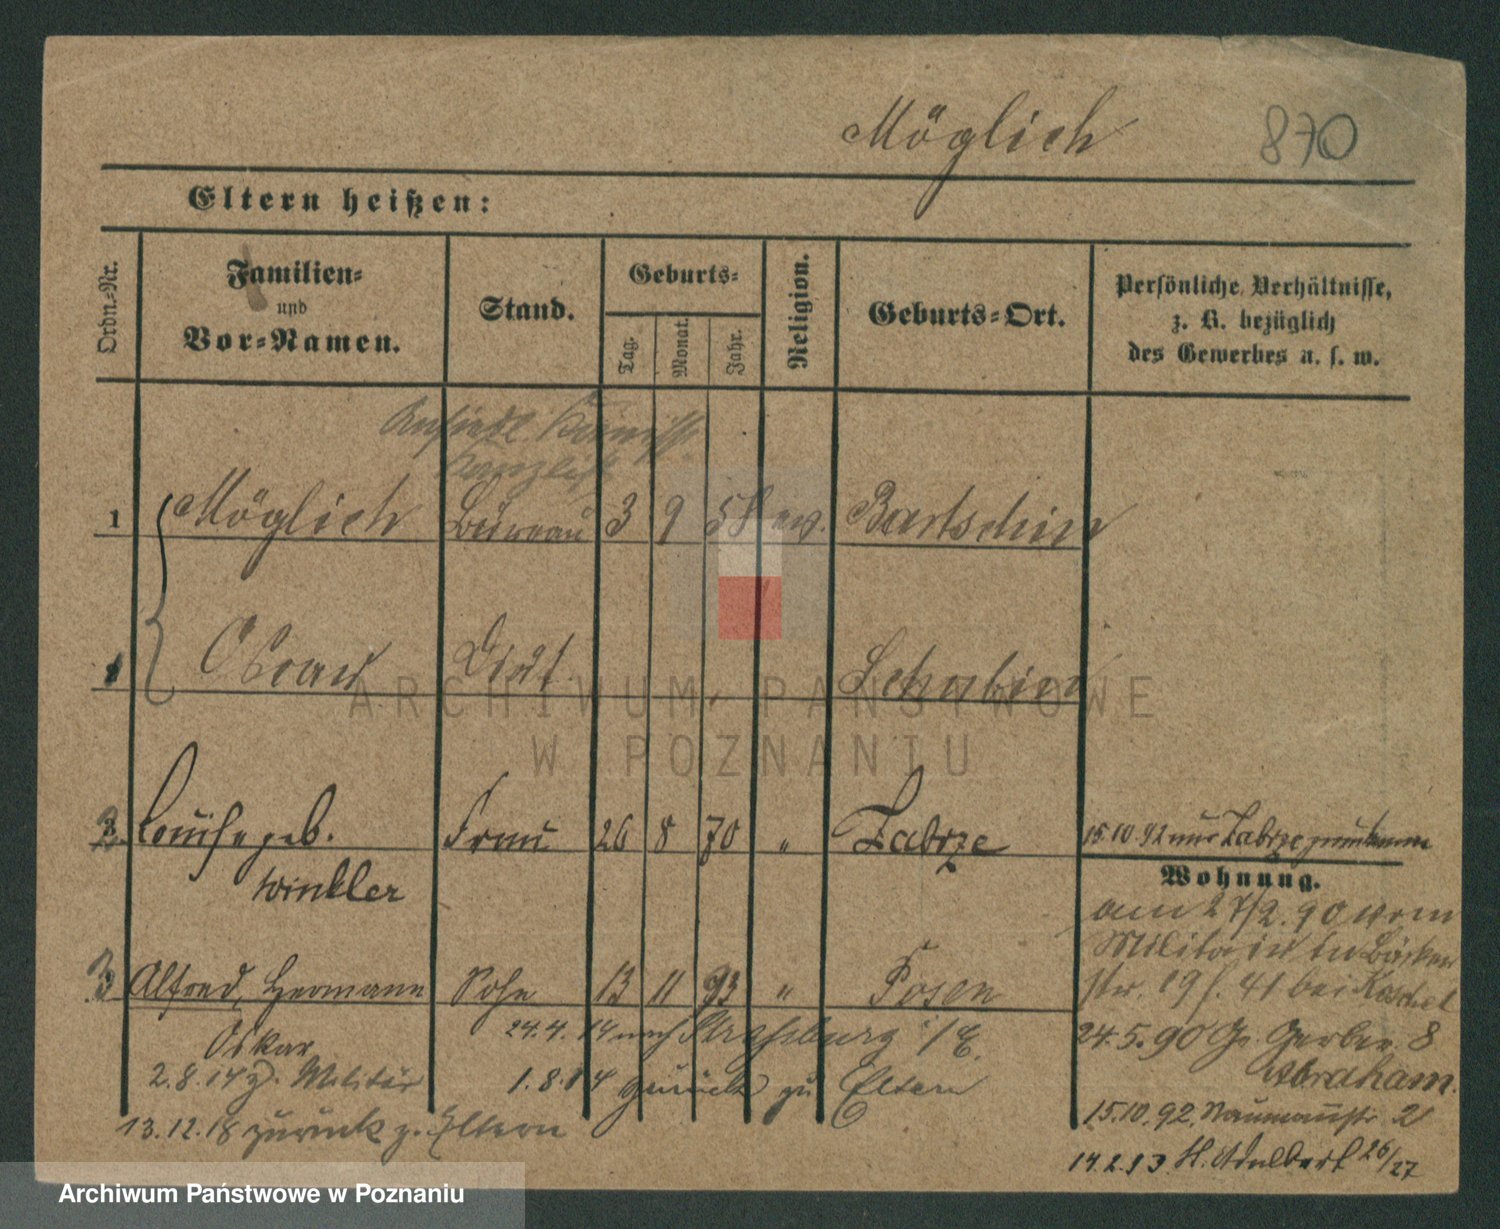 Möglich 870
Eltern heißen:
Ordn.-Nr.
Familien-
und
Vor-Namen.
Stand.
Geburts-
Tag.
Monat.
Jahr.
Religion.
Geburts-Ort.
Persönliche Verhältnisse,
z. B. bezüglich
des Gewerbes u. s. w.
Ansiedl. Kommiss.
Kanzlist
1 Möglich Bureau 3 9 58 ev. Bartschin
Oskar Diät. Schubin
ARCHIWUM PAŃSTWOWE
W POZNANIU
2. Louise geb. Frau 26 8 70 " Zabrze 15.10.92 aus Zabrze
Winkler
Wohnung.
am 27/2.90 vom
Militair in Bäcker
str. 19 f. 41 bei
3 Alfred, Hermann Sohn 13 11 93 " Posen
Oskar
24.4.14 nach Strassburg i/E.
24.5.90 Gr. Gerber. 8
Abraham.
2.8.14 z. Militär
1.8.14 zurück zu Eltern
13.12.18 zurück z. Eltern
15.10.92. Naumannstr. 2
14.2.93 St. Adalbert 26/27
Archiwum Państwowe w Poznaniu